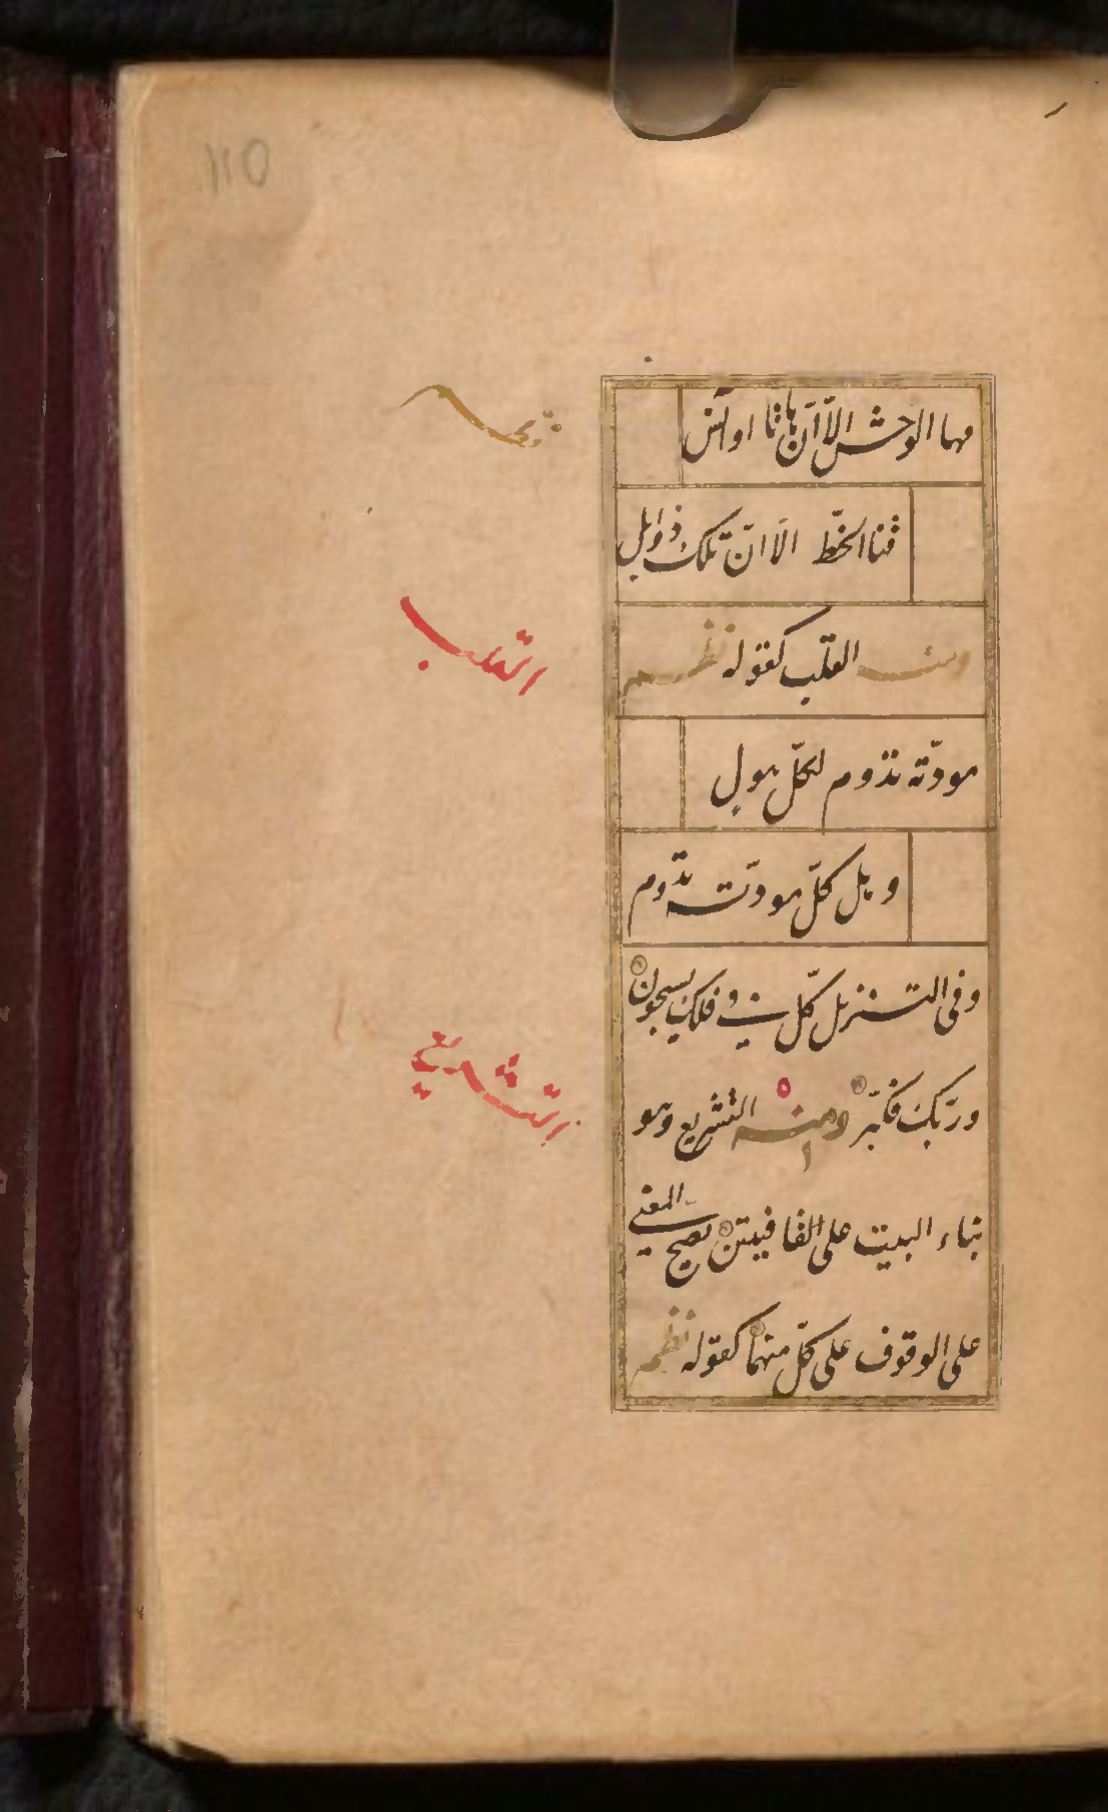 مها الوحش الّا انّ هاتا اوانس
قنا الخطّ الّا انّ تلك ذوابل
ومنه القلب كقوله نظم
مودّته تدوم لكلّ هول
وهل كلّ مودّته تدوم
وفي التنزيل كلّ في فلك يسبحون
وربّك فكبّر ومنه التشريع وهو
بناء البيت على القافيتين يصح المعنى
على الوقوف على كلّ منهما كقوله نظم
القلب
التشريع
110